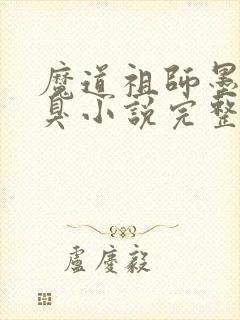 魔道祖師墨
臭小說完整
盧慶毅